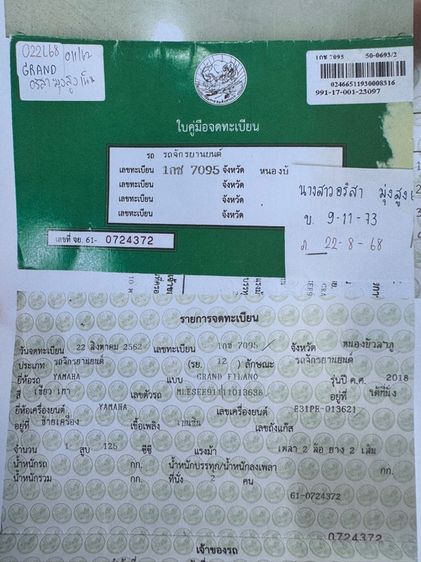 022L68 011/62
GRAND
1กช 7095 50-0693/2
02466511930008316
991-17-001-23097
ใบคู่มือจดทะเบียน
รถ รถจักรยานยนต์
เลขทะเบียน 1กช 7095 จังหวัด หนองบั
เลขทะเบียน จังหวัด
เลขทะเบียน จังหวัด
เลขทะเบียน จังหวัด
เลขที่ จย. 61- 0724372
นางสาวอรัสา มุงสูง
ข. 9-11-73
ภ 22-8-68
รายการจดทะเบียน
วันจดทะเบียน 22 สิงหาคม 2562 เลขทะเบียน 1กช 7095 จังหวัด หนองบัวลำภู
ประเภท รถจักรยานยนต์ (รย. 12) ลักษณะ รถจักรยานยนต์
ยี่ห้อรถ YAMAHA แบบ GRAND FILANO รุ่นปี ค.ศ. 2018
สี เขียว เทา เลขตัวรถ อยู่ที่ ใต้ที่นั่ง
ยี่ห้อเครื่องยนต์ YAMAHA เลขเครื่องยนต์ E31PE-013621
อยู่ที่ ซ้ายเครื่อง เชื้อเพลิง เบนซิน เลขถังแก๊ส
จำนวน 1 สูบ 125 ซีซี แรงม้า เพลา 2 ล้อ ยาง 2 เส้น
น้ำหนักรถ กก. น้ำหนักบรรทุก/น้ำหนักลงเพลา กก.
น้ำหนักรวม กก. ที่นั่ง 2 คน
61-0724372
0724372
เจ้าของรถ